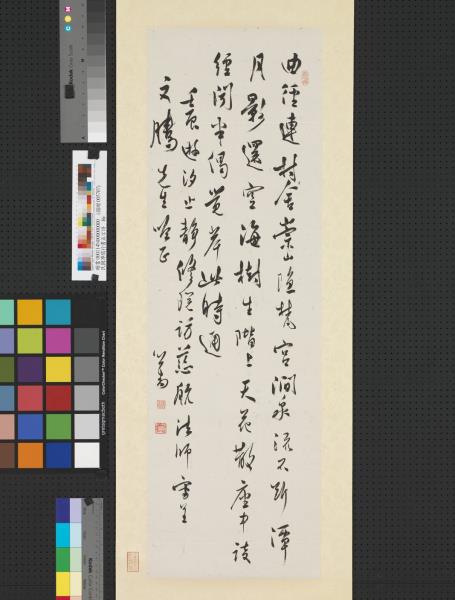 曲徑連村舍崇山隱梵宮澗泉流不斷潭
月影還空海樹生階上天花散座中談
經聞半偈覺岸此時通
壬寅遊汐止靜修院訪慈航法師寄呈
文騰先生哂正
心畬